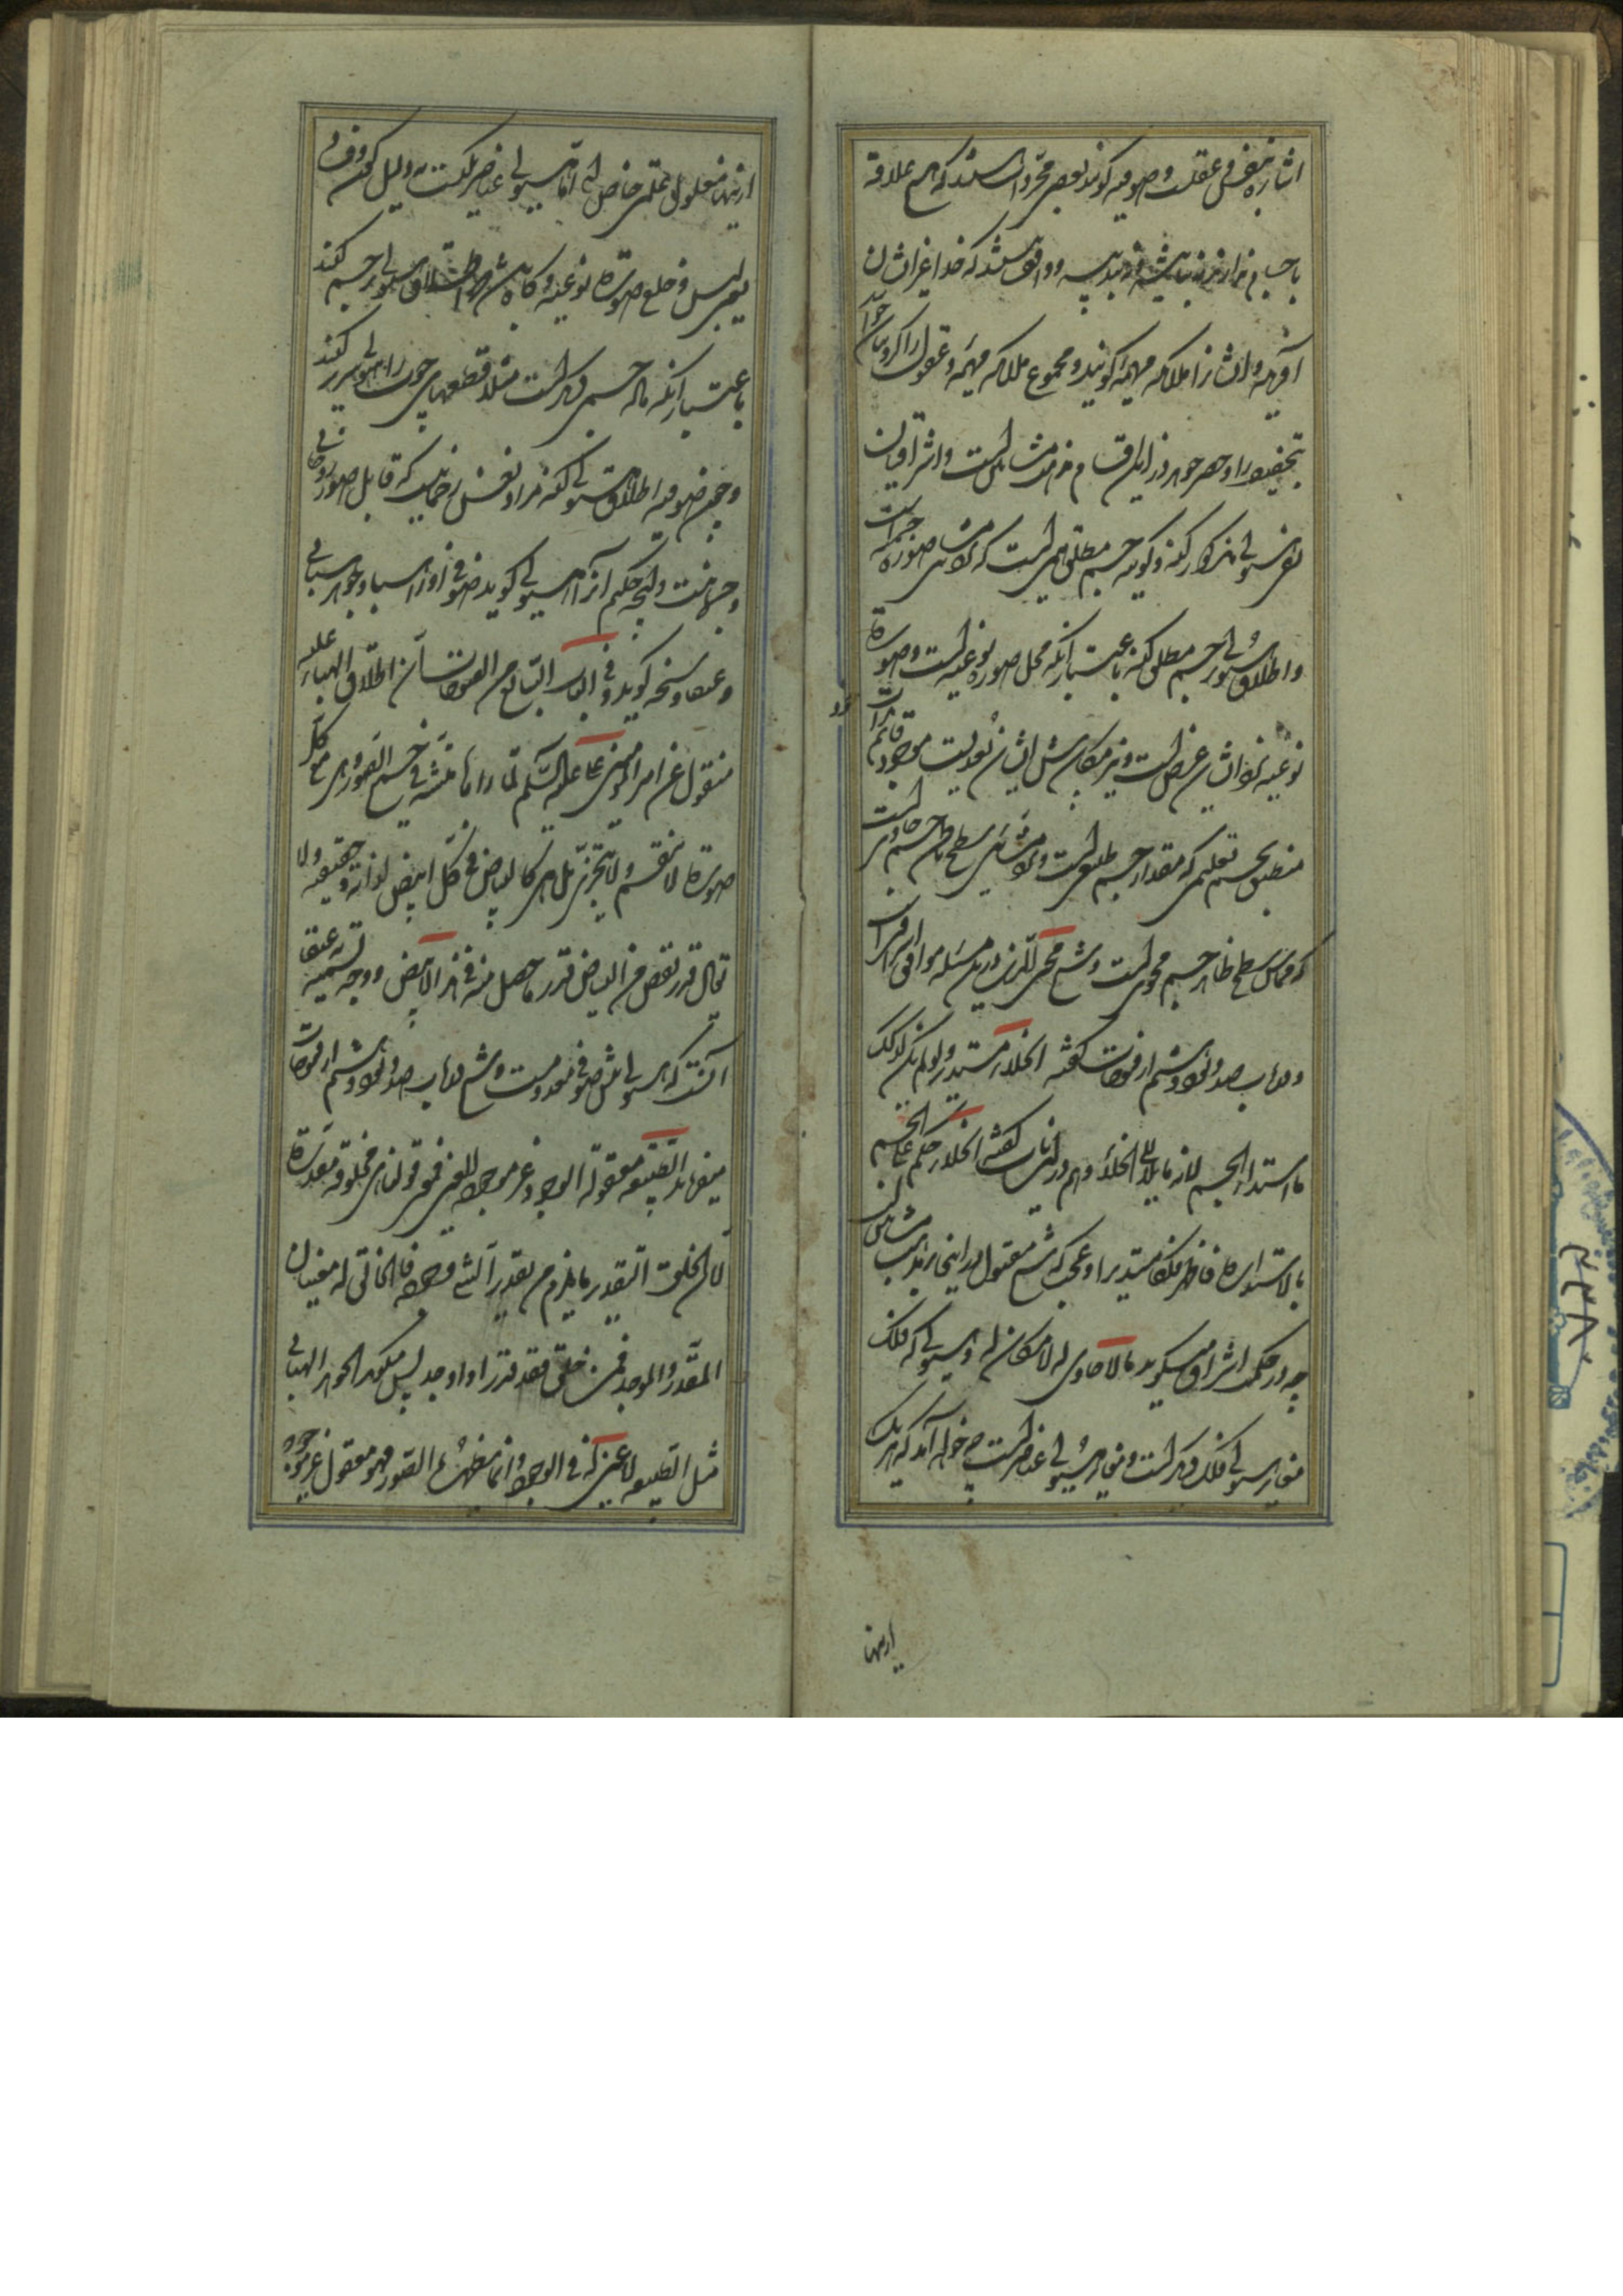 اشاره بنفس و عقلست و صوفیه گویند بعضی مجردات هستند که هیچ علاقه
باجسام ندارند نه بتاثیر نه بتدبیر و واقف نیستند که خدا غیر ایشان
آفریده و ایشانرا ملائکه مهیمه گویند و مجموع ملائکه مهیمه و عقول را کروبیان خوانند
و حصر جواهر در این اقسام مذهب مشائین است و اشراقیان
نفی هیولی مذکور کنند و گویند جسم مطلق همین است که نزد مشائین صورة جسمیه است
و اطلاق هیولی بر جسم مطلق کنند باعتبار آنکه محل صوره نوعیه است و صورة
نوعیه نزد ایشان عرض است و نیز مکان پیش ایشان بعدیست موجود قائم بذات
منطبق بجسم تعلیمی که مقدار جسم طبیعی است و نزد مشائین سطح باطن جسم حاویست
که مماس سطح ظاهر جسم محوی است و شیخ محی الدین درین مسئله موافق اشراقیان
و در باب صد و نود و ششم از فتوحات گفته الخلاء مستدیر و لو لم یکن کذلک
ما استدار الجسم لانه ما ملأ الا الخلاء و هم در این باب گفته الخلاء حکم علی الجسم
بالاستدارة فاظهر فلکا مستدیرا و عجب که شیخ مقتول در اینجا بمذهب مشائین است
چه در حکمت اشراق میگوید ما لا حاوی له لا مکان له و هیولی که فلک
مغایر هیولی فلک دیگر است و مغایر هیولی عناصر است چه خواهد آمد که هر یک
ازینها
ازینها معلول عقلی خاص اند اما هیولی عناصر یکیست بدلیل کون و فساد
یعنی لبس و خلع صورة نوعیه و گاه باشد که اطلاق هیولی بر جسم کنند
باعتبار آنکه ماده جسمی دیگر است مثلا قطعهای چوب را هیولی سریر گویند
و چون صوفیه اطلاق هیولی کنند مراد نفس رحمانیست که قابل صور روحانی
و جسمانیست و آنچه حکیم آنرا هیولی گوید صوفی او را هبا و جوهر هبائی
و عنقا و سبخه گوید و فی الباب السابع من الفتوحات ان اطلاق الهباء علیه
منقول عن امیر المؤمنین علی علیه السلام لما راها منبثة فی جمیع الصور و هی مع کل
صورة لا تنقسم و لا تتجزی بل هی کالبیاض فی کل ابیض لذاته و حقیقته و لا
یقال قد نقص من البیاض قدر ما حصل منه فی هذا الابیض و وجه تسمیه بعنقا
آنست که هیولی مثل صوفی معدومست و شیخ در باب صد و نود و ششم از فتوحات
میفرماید الطبیعة معقولة الوجود غیر موجودة العین فهی مخلوقة مقدرة
لان الخلق التقدیر و ما یلزم من تقدیر الشیء وجوده فالخالق له معنیان
المقدر و الموجد فمن خلق فقد قدر او اوجد پس میگوید الجوهر الهبائی
مثل الطبیعة لا عین له فی الوجود و انما تظهره الصور فهو معقول غیر موجود